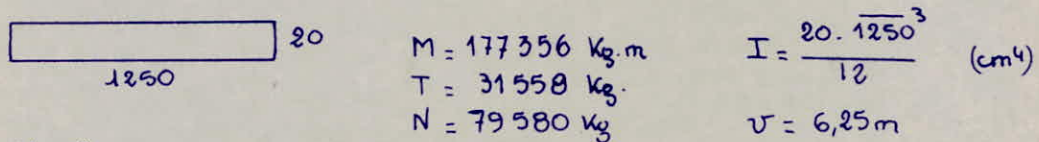 20
1250
M = 177356 Kg.m
T = 31558 Kg.
N = 79580 Kg
I = 20 . 1250³ / 12 (cm⁴)
v = 6,25m